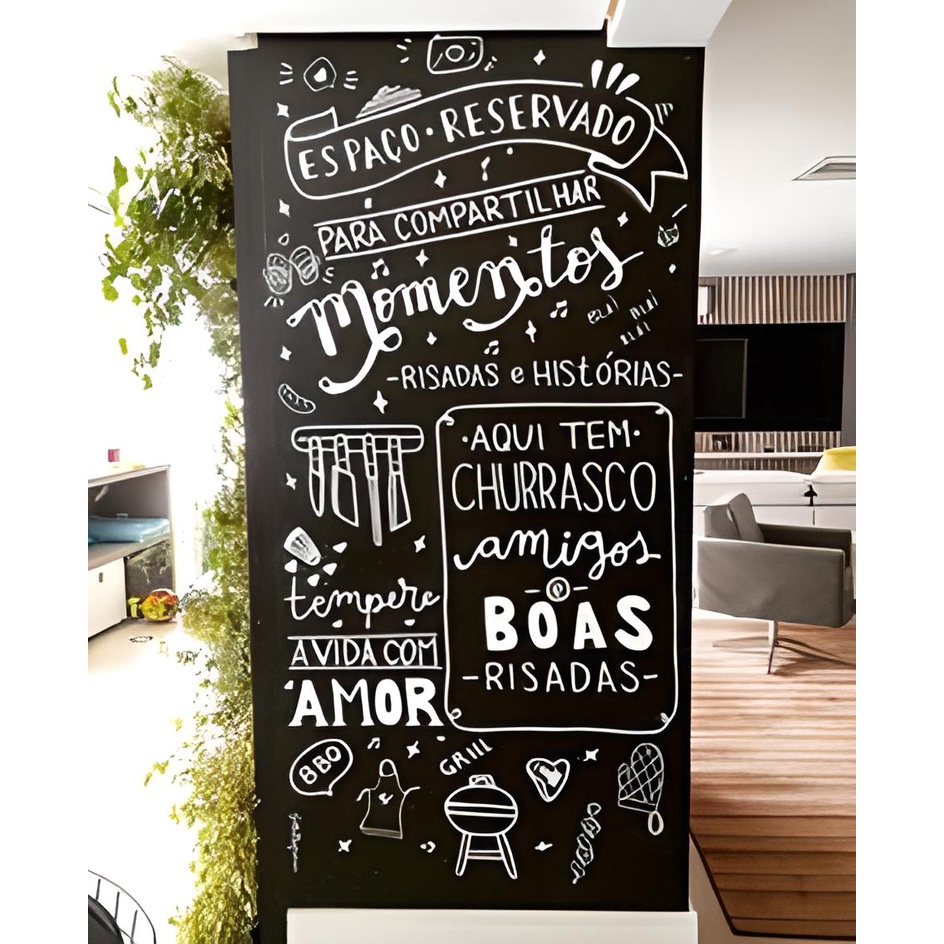 ESPAÇO · RESERVADO
PARA COMPARTILHAR
Momentos
-RISADAS e HISTÓRIAS-
·AQUI TEM·
CHURRASCO
amigos
-e-
BOAS
-RISADAS-
tempere
A VIDA COM
AMOR
BBQ
GRILL